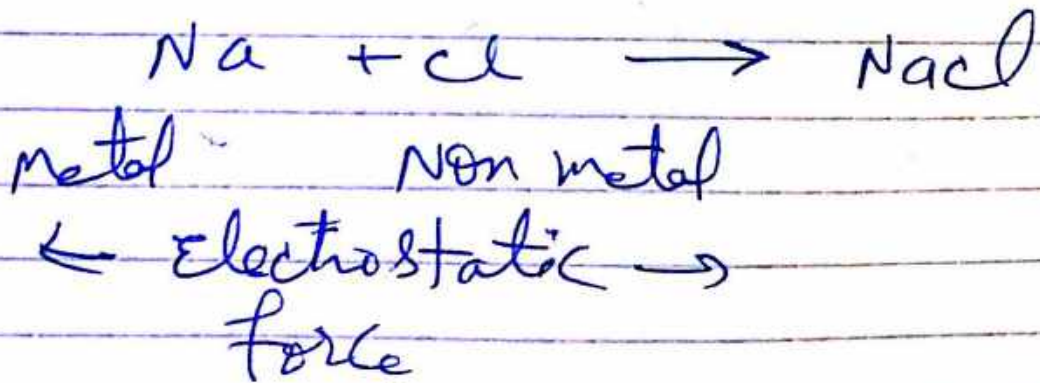 Na + cl → Nacl
Metal Non metal
← Electrostatic →
force